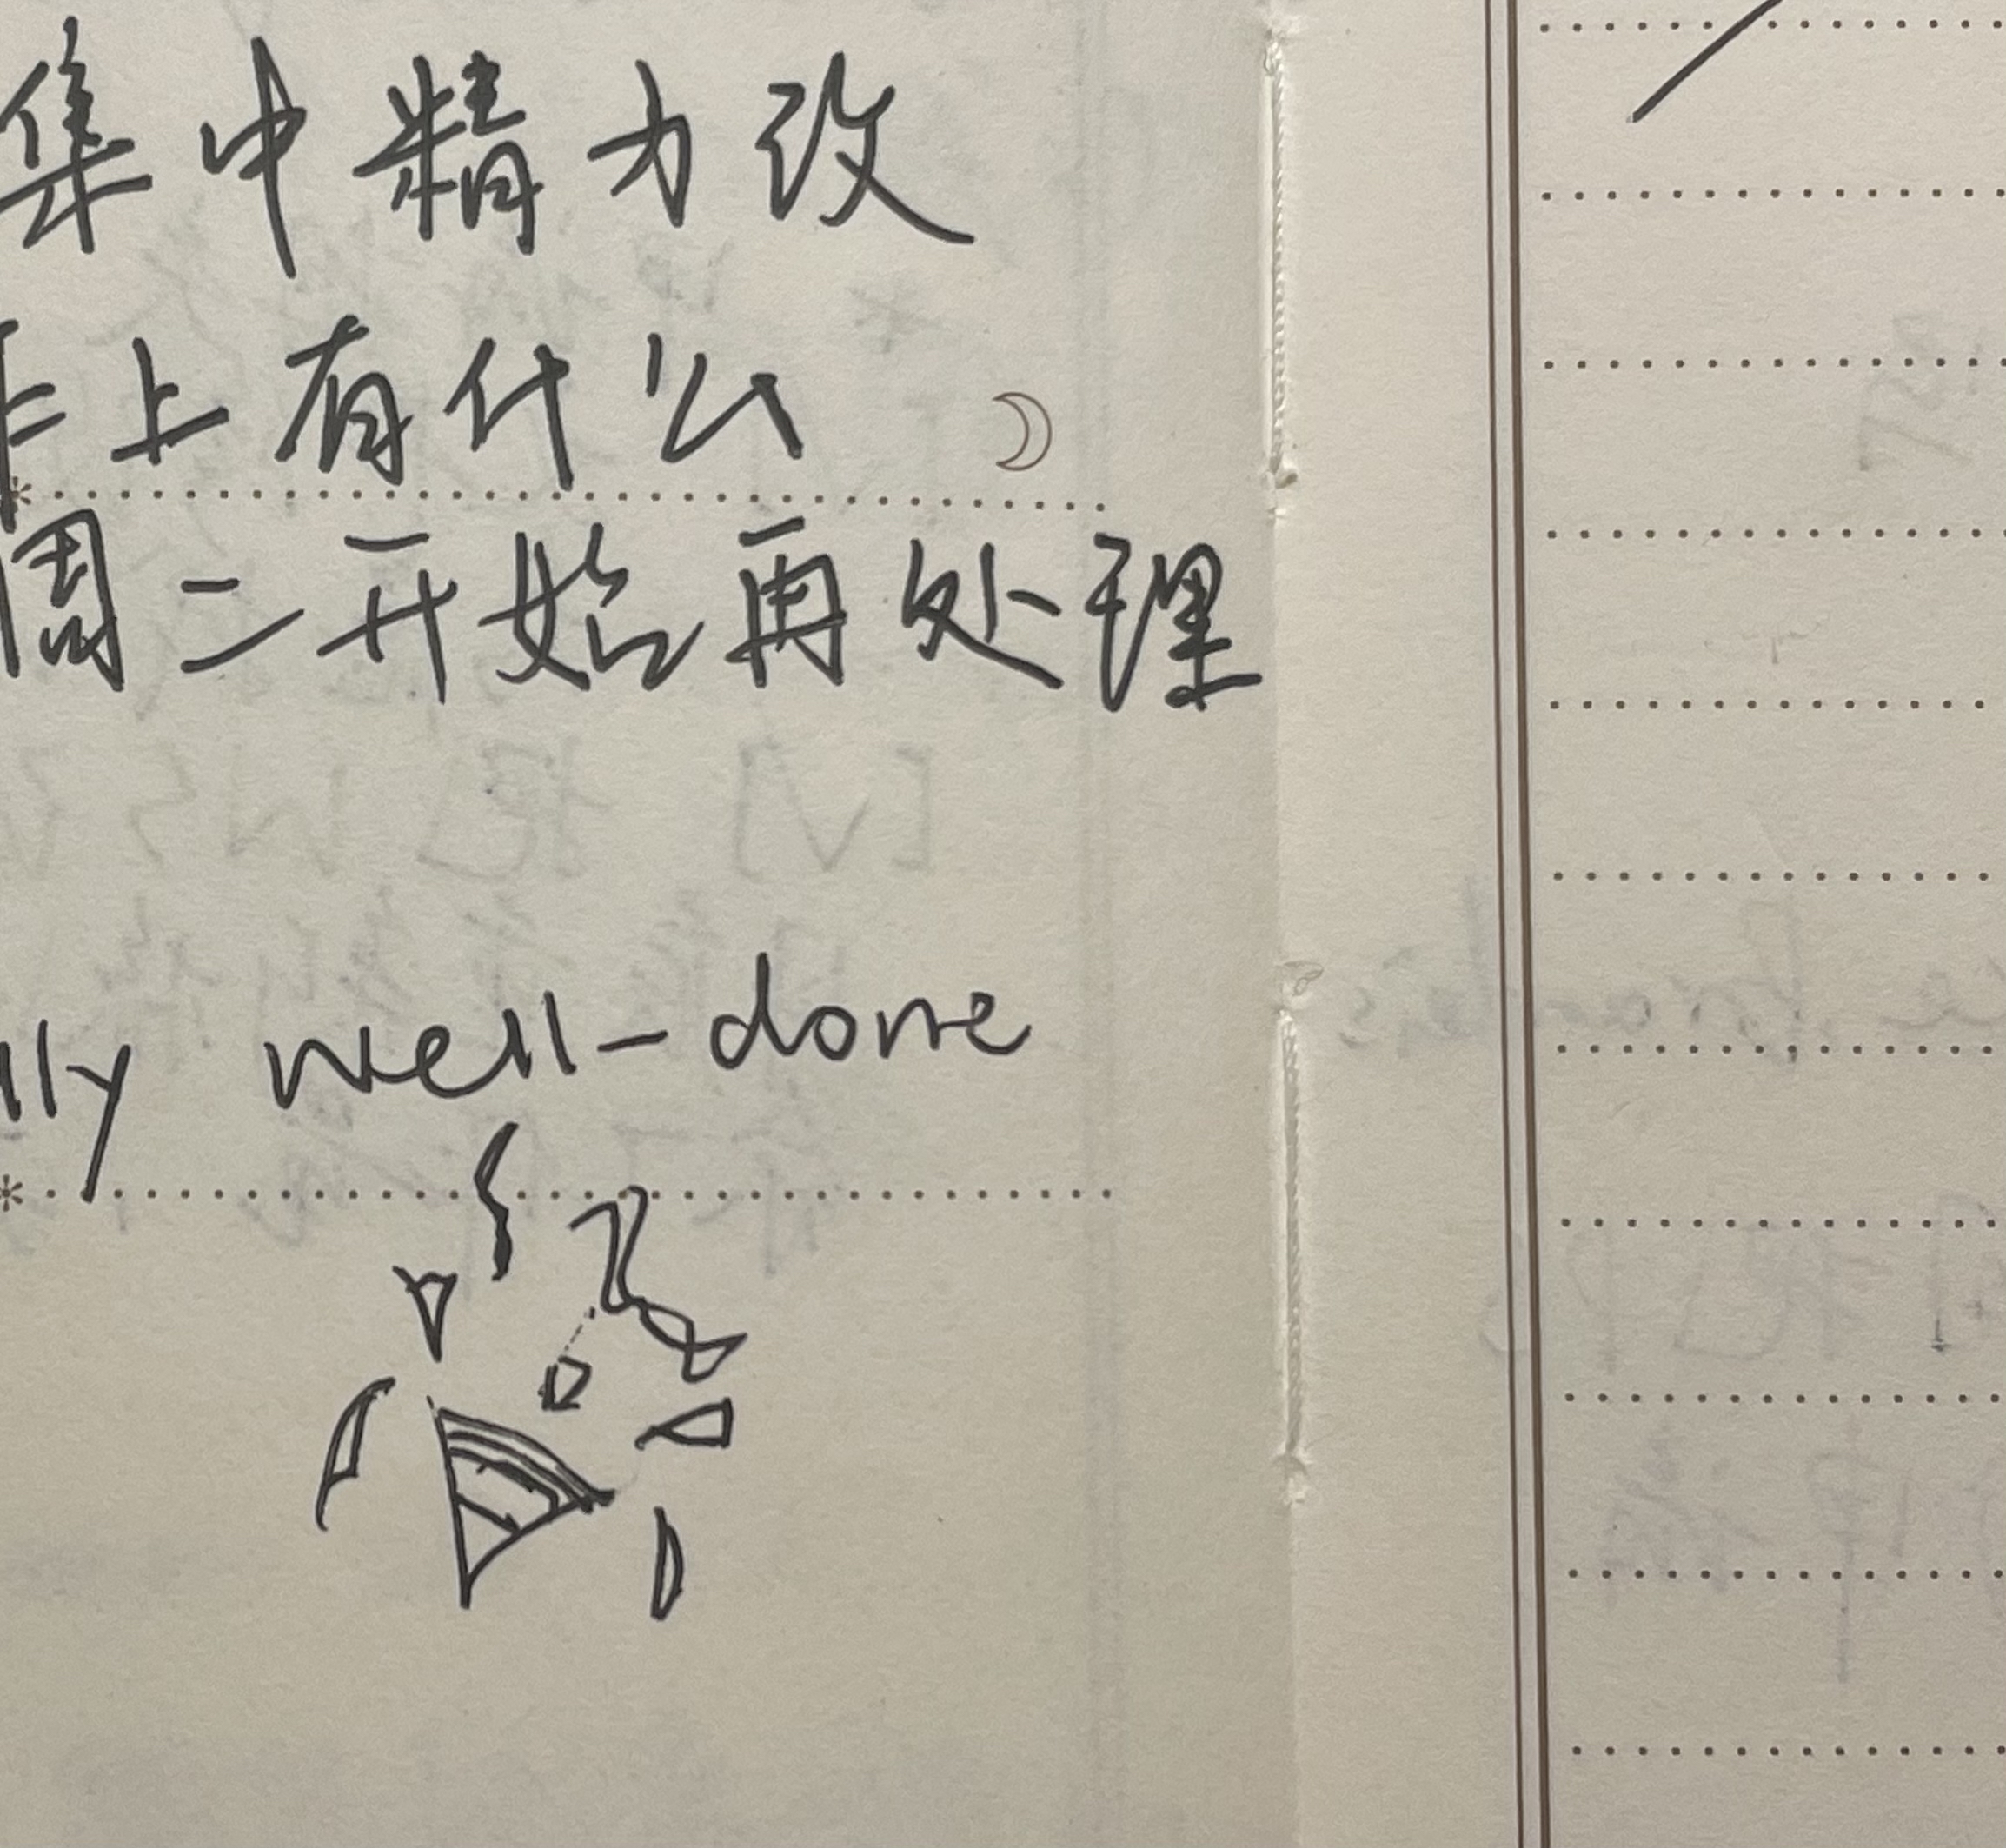 集中精力改
上有什么
周二开始再处理
lly well-done